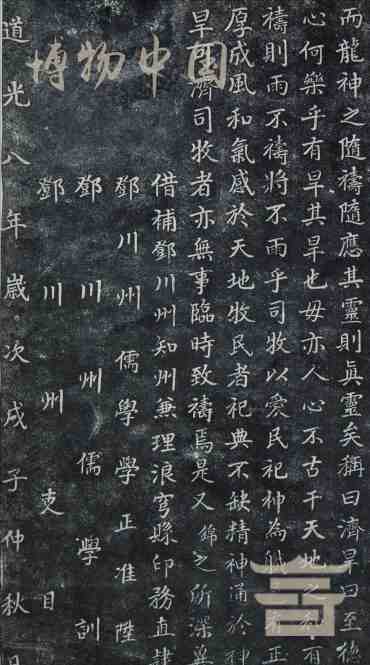 而龍神之隨禱隨應其靈則眞靈矣稱曰濟旱曰至德
心何樂乎有旱其旱也毋亦人心不古干天地之和有
禱則雨不禱將不雨乎司牧以愛民祀神為職
厚成風和氣感於天地牧民者祀典不缺精神通於神
旱 濟司牧者亦無事臨時致禱焉是又錦之所深冀
借補鄧川州知州兼理浪穹縣印務直隸
鄧川州儒學學正准陞
鄧川州儒學訓
鄧川州吏目
道光八年歲次戊子仲秋月
博物中国